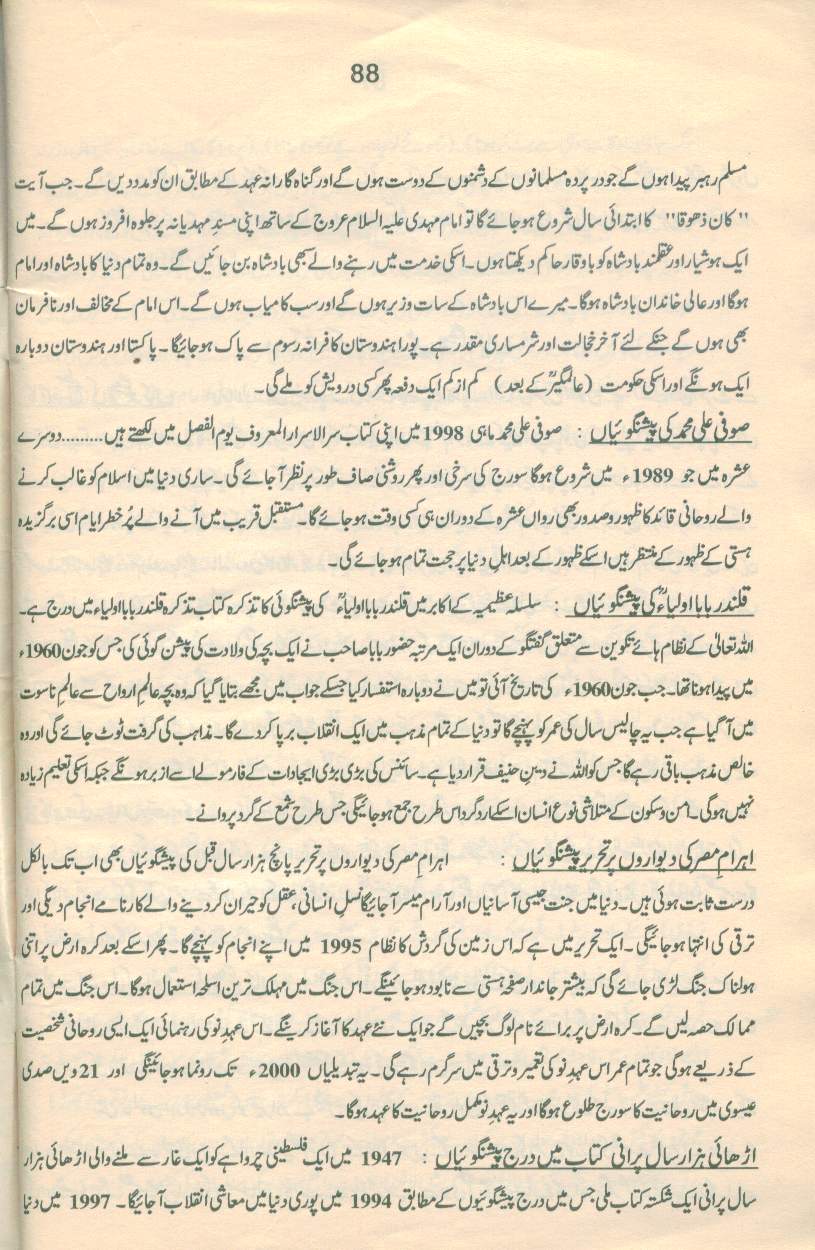 88
مسلم رہبر پیدا ہوں گے جو در پردہ مسلمانوں کے دشمنوں کے دوست ہوں گے اور گناہ گارانہ عہد کے مطابق ان کو مدد دیں گے۔ جب آیت
"کان ذھوقا" کا ابتدائی سال شروع ہو جائے گا تو امام مہدی علیہ السلام عروج کے ساتھ اپنی مسندِ مہدیانہ پر جلوہ افروز ہوں گے۔ میں
ایک ہوشیار اور عقلمند بادشاہ کو باوقار حاکم دیکھتا ہوں۔ اسکی خدمت میں رہنے والے سبھی بادشاہ بن جائیں گے۔ وہ تمام دنیا کا بادشاہ اور امام
ہوگا اور عالی خاندان بادشاہ ہوگا۔ میرے اس بادشاہ کے سات وزیر ہوں گے اور سب کامیاب ہوں گے۔ اس امام کے مخالف اور نافرمان
بھی ہوں گے جنکے لئے آخر خجالت اور شرمساری مقدر ہے۔ پورا ہندوستان کافرانہ رسوم سے پاک ہو جائیگا۔ پاکستا اور ہندوستان دوبارہ
ایک ہونگے اور اسکی حکومت (عالمگیرؒ کے بعد) کم از کم ایک دفعہ پھر کسی درویش کو ملے گی۔
صوفی علی محمد کی پیشنگوئیاں : صوفی علی محمد ماہی 1998 میں اپنی کتاب سر الاسرار المعروف یوم الفصل میں لکھتے ہیں.........دوسرے
عشرہ میں جو 1989ء میں شروع ہوگا سورج کی سرخی اور پھر روشنی صاف طور پر نظر آجائے گی۔ ساری دنیا میں اسلام کو غالب کرنے
والے روحانی قائد کا ظہور و صدور بھی رواں عشرہ کے دوران ہی کسی وقت ہو جائے گا۔ مستقبل قریب میں آنے والے پُر خطر ایام اسی برگزیدہ
ہستی کے ظہور کے منتظر ہیں اسکے ظہور کے بعد اہلِ دنیا پر حجت تمام ہو جائے گی۔
قلندر بابا اولیاءؒ کی پیشنگوئیاں : سلسلہ عظیمیہ کے اکابر میں قلندر بابا اولیاءؒ کی پیشگوئی کا تذکرہ کتاب تذکرہ قلندر بابا اولیاء میں درج ہے۔
اللہ تعالیٰ کے نظام ہائے تکوین سے متعلق گفتگو کے دوران ایک مرتبہ حضور بابا صاحب نے ایک بچہ کی ولادت کی پیشن گوئی کی جس کو جون 1960ء
میں پیدا ہونا تھا۔ جب جون 1960ء کی تاریخ آئی تو میں نے دوبارہ استفسار کیا جسکے جواب میں مجھے بتایا گیا کہ وہ بچہ عالمِ ارواح سے عالمِ ناسوت
میں آ گیا ہے جب یہ چالیس سال کی عمر کو پہنچے گا تو دنیا کے تمام مذہب میں ایک انقلاب برپا کر دے گا۔ مذاہب کی گرفت ٹوٹ جائے گی اور وہ
خالص مذہب باقی رہے گا جس کو اللہ نے دینِ حنیف قرار دیا ہے۔ سائنس کی بڑی بڑی ایجادات کے فارمولے اسے ازبر ہونگے جبکہ اسکی تعلیم زیادہ
نہیں ہوگی۔ امن و سکون کے متلاشی نوع انسان اسکے اردگرد اس طرح جمع ہو جائیگی جس طرح شمع کے گرد پروانے۔
اہرامِ مصر کی دیواروں پر تحریر پیشنگوئیاں : اہرامِ مصر کی دیواروں پر تحریر پانچ ہزار سال قبل کی پیشگوئیاں بھی اب تک بالکل
درست ثابت ہوئی ہیں۔ دنیا میں جنت جیسی آسانیاں اور آرام میسر آ جائیگا نسلِ انسانی، عقل کو حیران کر دینے والے کارنامے انجام دیگی اور
ترقی کی انتہا ہو جائیگی۔ ایک تحریر میں ہے کہ اس زمین کی گردش کا نظام 1995 میں اپنے انجام کو پہنچے گا۔ پھر اسکے بعد کرہ ارض پر اتنی
ہولناک جنگ لڑی جائے گی کہ بیشتر جاندار صفحہ ہستی سے نابود ہو جائینگے۔ اس جنگ میں مہلک ترین اسلحہ استعمال ہوگا۔ اس جنگ میں تمام
ممالک حصہ لیں گے۔ کرہ ارض پر برائے نام لوگ بچیں گے جو ایک نئے عہد کا آغاز کرینگے۔ اس عہدِ نو کی رہنمائی ایک ایسی روحانی شخصیت
کے ذریعے ہوگی جو تمام عمر اس عہد نو کی تعمیر و ترقی میں سرگرم رہے گی۔ یہ تبدیلیاں 2000ء تک رونما ہو جائینگی اور 21 ویں صدی
عیسوی میں روحانیت کا سورج طلوع ہوگا اور یہ عہدِ نو مکمل روحانیت کا عہد ہوگا۔
اڑھائی ہزار سال پرانی کتاب میں درج پیشنگوئیاں : 1947 میں ایک فلسطینی چرواہے کو ایک غار سے ملنے والی اڑھائی ہزار
سال پرانی ایک شکستہ کتاب ملی جس میں درج پیشگوئیوں کے مطابق 1994 میں پوری دنیا میں معاشی انقلاب آ جائیگا۔ 1997 میں دنیا